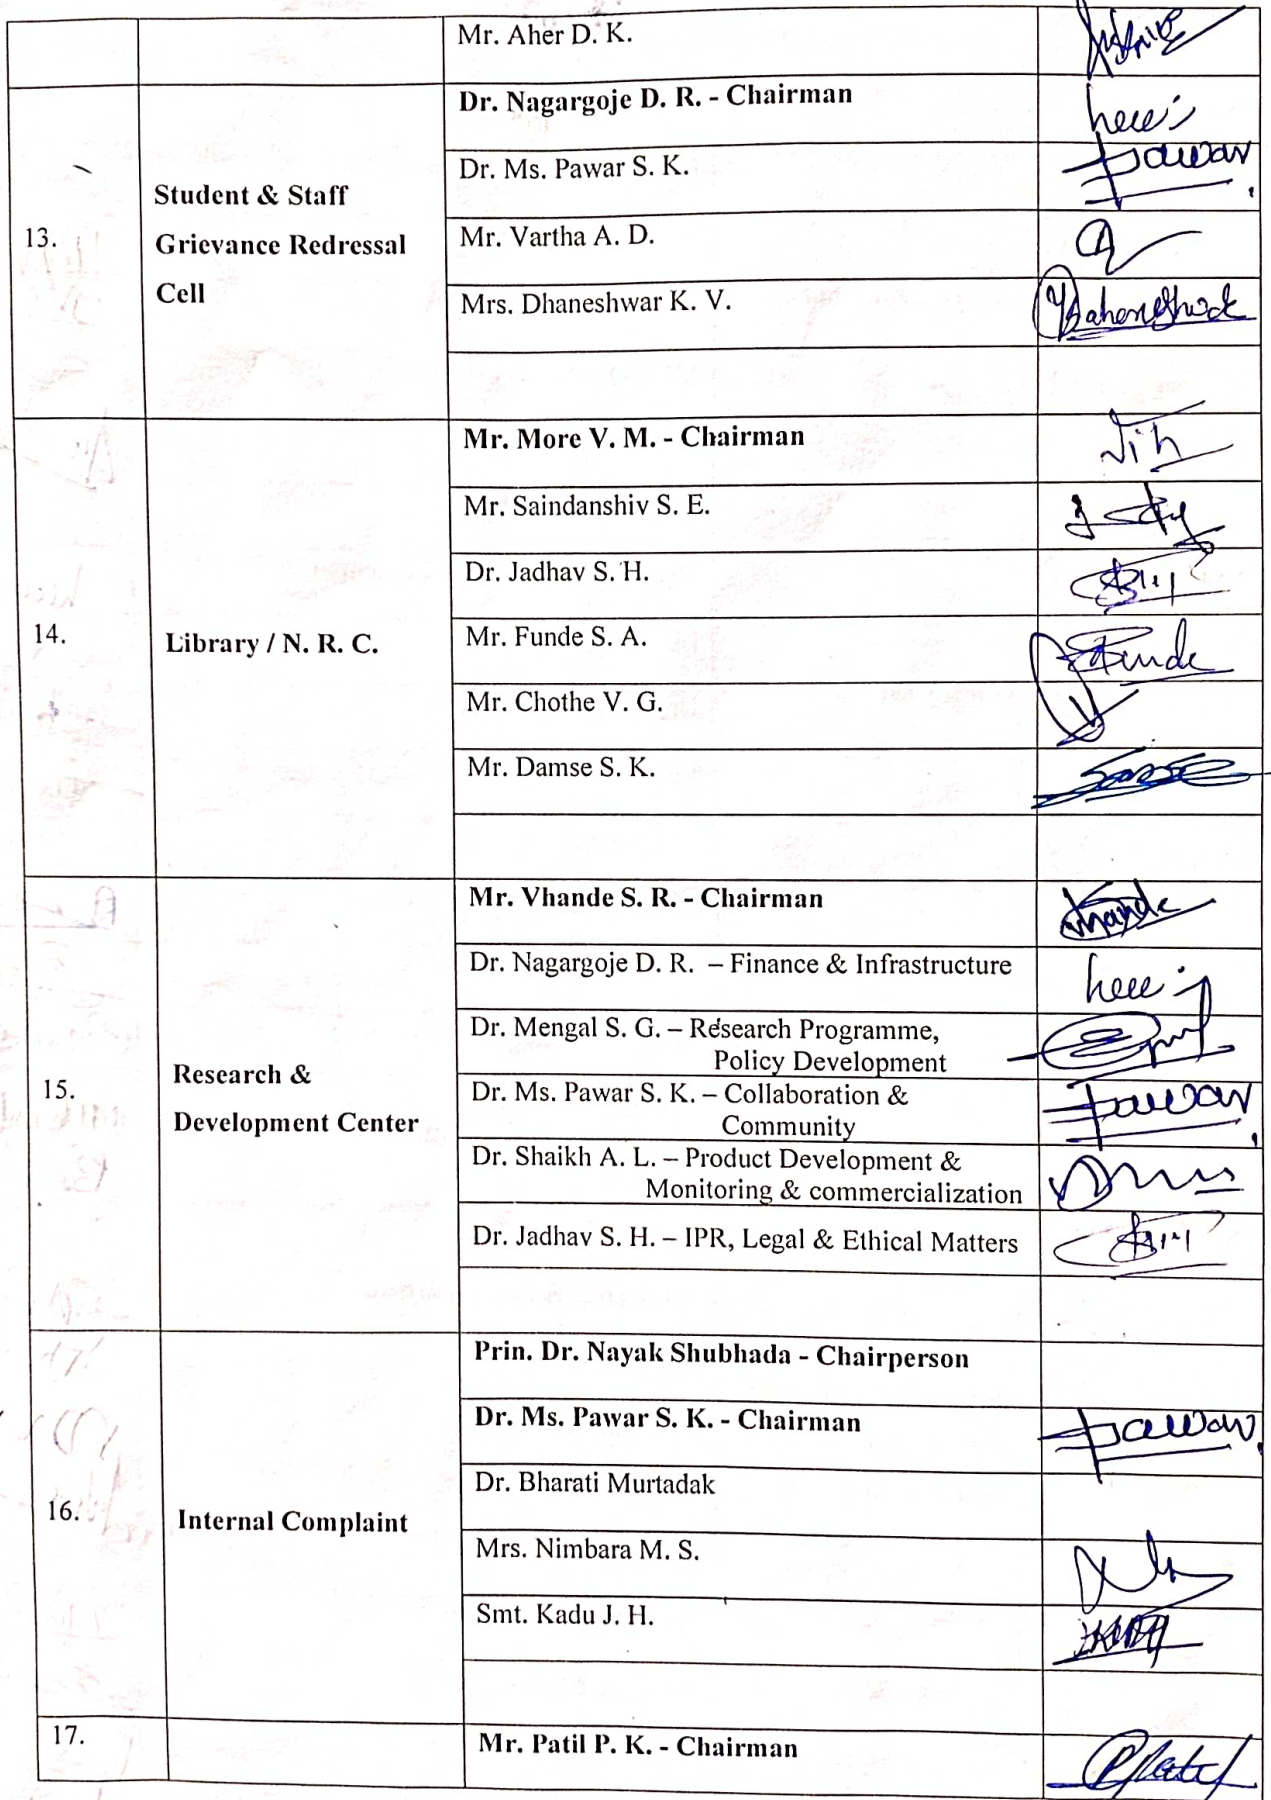 Mr. Aher D. K.
13.
Student & Staff
Grievance Redressal
Cell
Dr. Nagargoje D. R. - Chairman
Dr. Ms. Pawar S. K.
Pawar
Mr. Vartha A. D.
Mrs. Dhaneshwar K. V.
14.
Library / N. R. C.
Mr. More V. M. - Chairman
Mr. Saindanshiv S. E.
Dr. Jadhav S. H.
Mr. Funde S. A.
Funde
Mr. Chothe V. G.
Mr. Damse S. K.
15.
Research &
Development Center
Mr. Vhande S. R. - Chairman
Vhande
Dr. Nagargoje D. R. – Finance & Infrastructure
Dr. Mengal S. G. – Research Programme,
Policy Development
Dr. Ms. Pawar S. K. – Collaboration &
Community
Pawar
Dr. Shaikh A. L. – Product Development &
Monitoring & commercialization
Dr. Jadhav S. H. – IPR, Legal & Ethical Matters
16.
Internal Complaint
Prin. Dr. Nayak Shubhada - Chairperson
Dr. Ms. Pawar S. K. - Chairman
Pawar
Dr. Bharati Murtadak
Mrs. Nimbara M. S.
Smt. Kadu J. H.
17.
Mr. Patil P. K. - Chairman